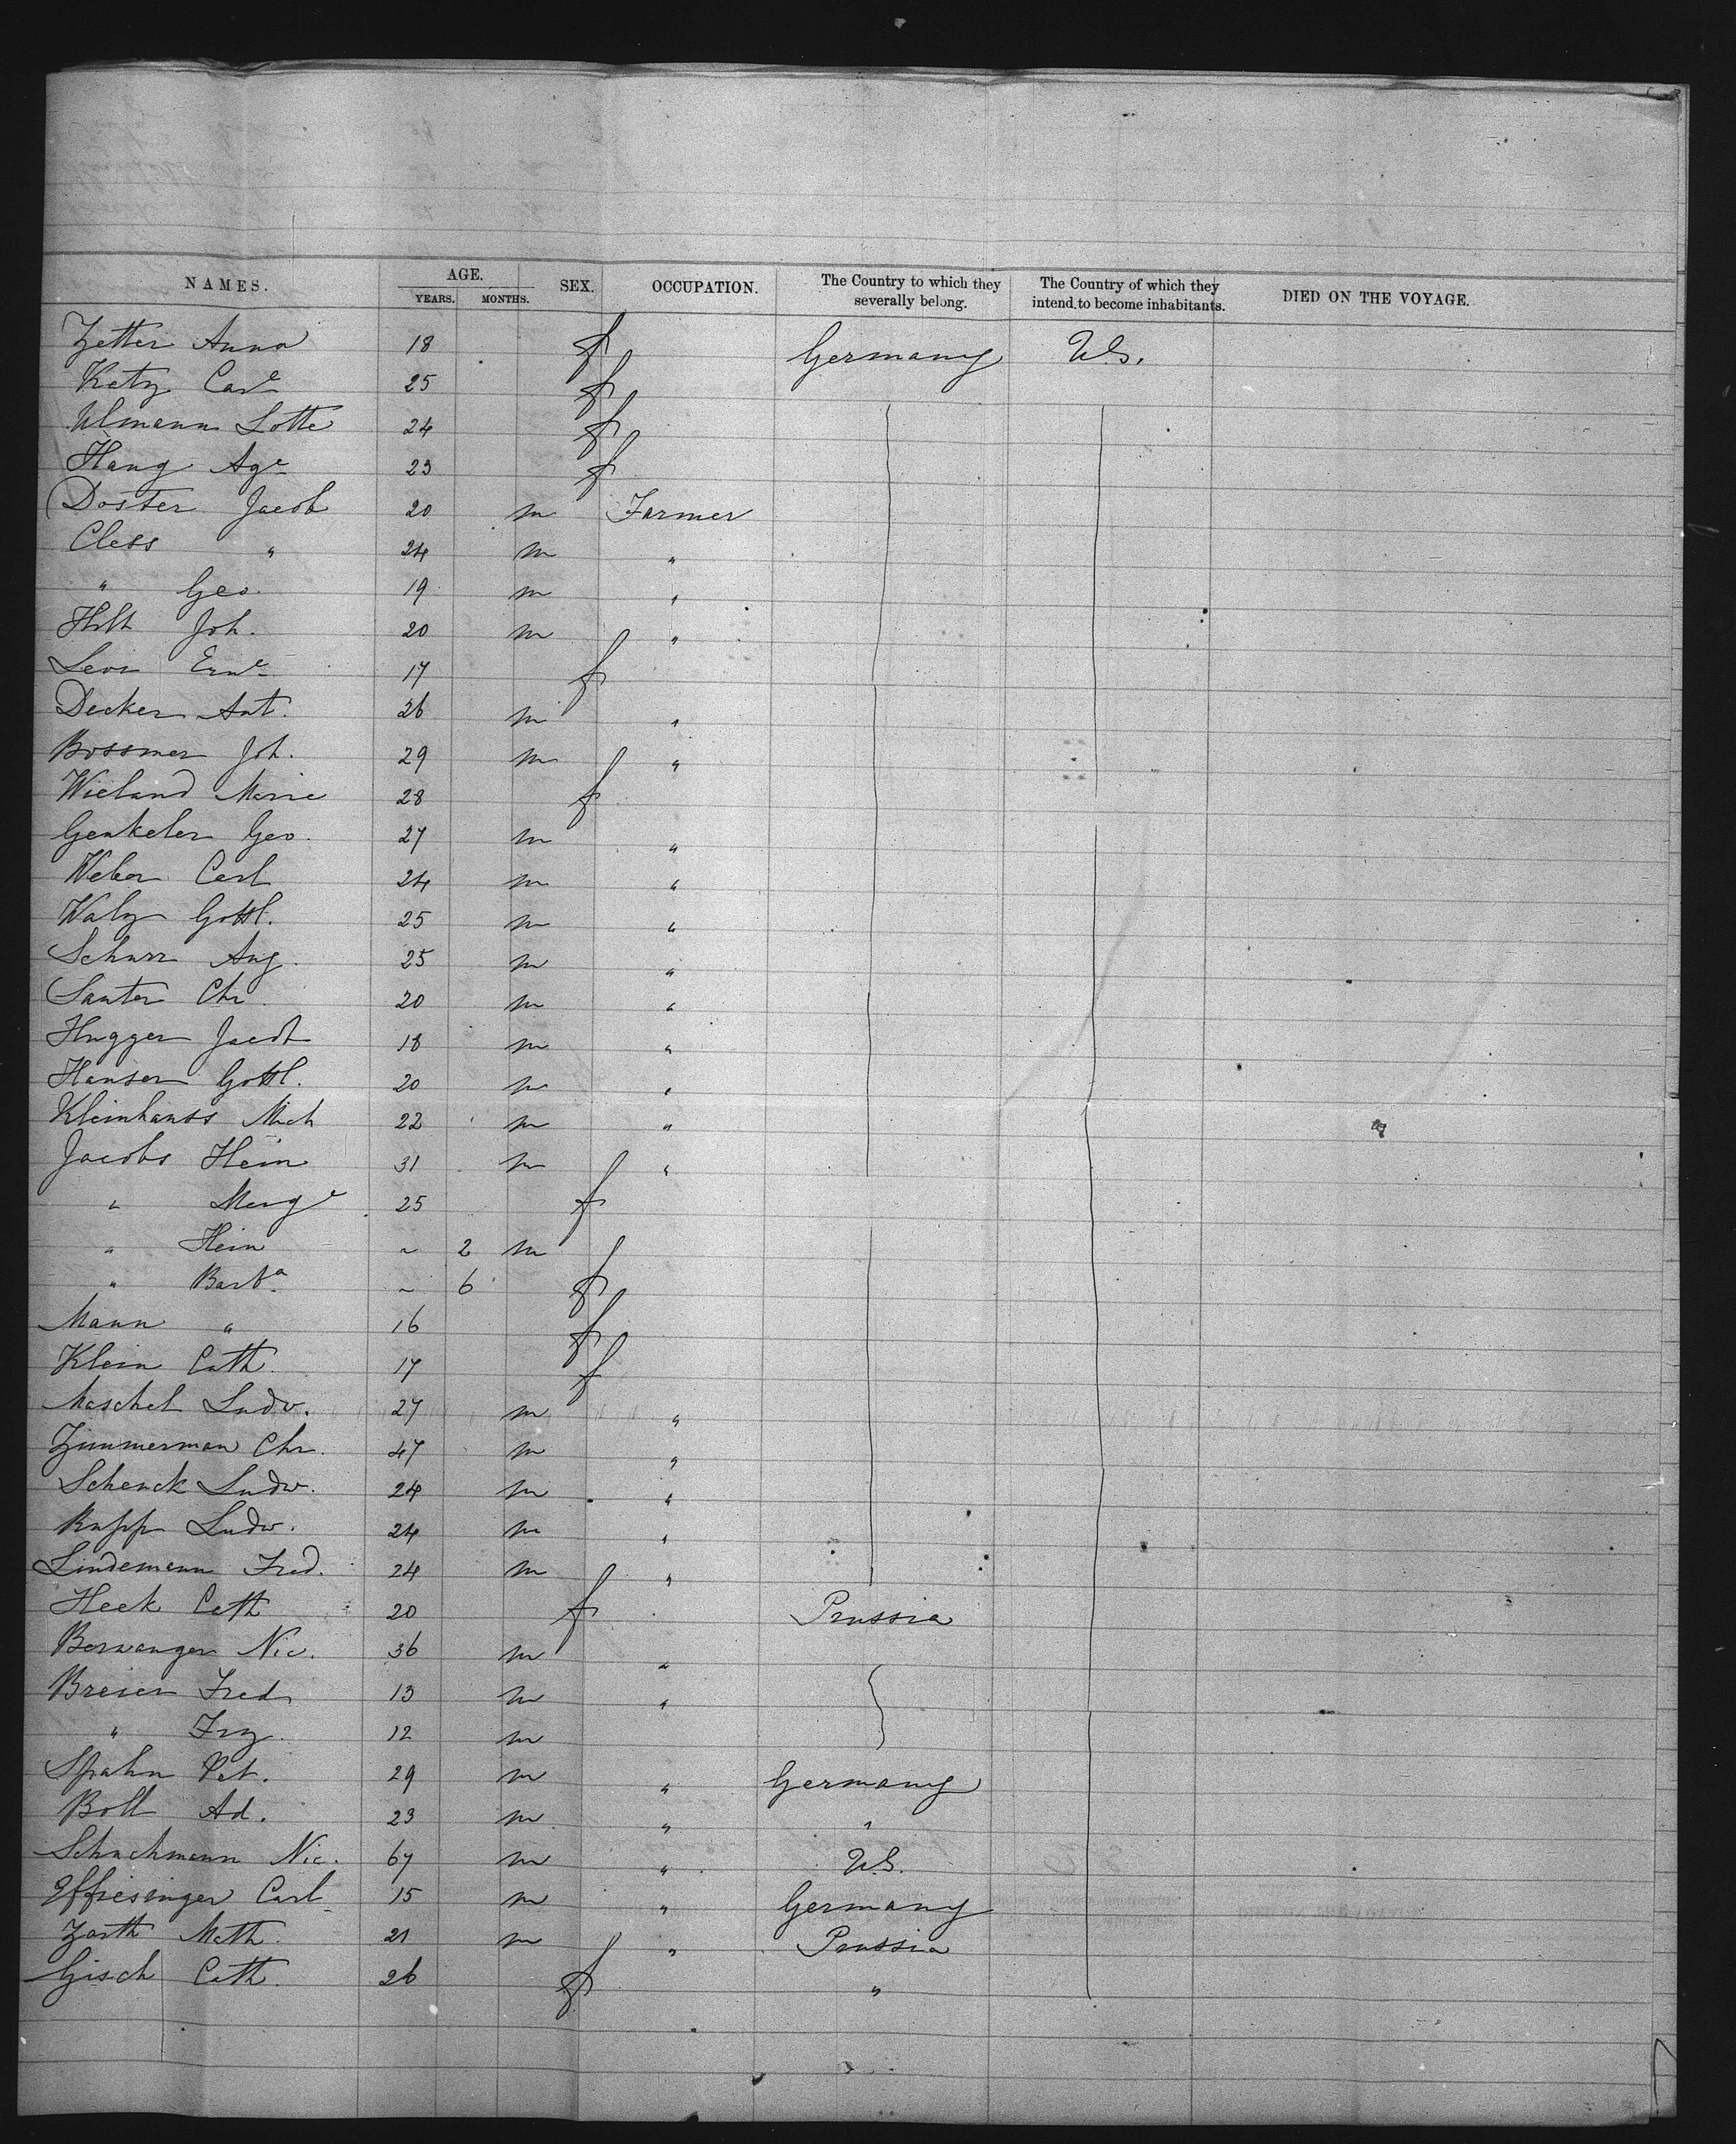 NAMES. AGE. YEARS. MONTHS. SEX. OCCUPATION. The Country to which they severally belong. The Country of which they intend to become inhabitants. DIED ON THE VOYAGE.
Zetter Anna 18 f Germany U.S.
Katz Carᵉ 25 f
Ulmann Lotte 24 f
Haug Agᵉ 23 f
Doster Jacob 20 m Farmer
Cless " 24 m "
" Geo. 19 m "
Hilt Joh. 20 m "
Levi Ernᵉ 17 f
Decker Ant. 26 m "
Bossmer Joh. 29 m "
Wieland Marie 28 f
Genkeler Geo. 27 m "
Weber Carl 24 m "
Walz Gottl. 25 m "
Schurr Aug. 25 m "
Sauter Chr. 20 m "
Hugger Jacob 18 m "
Hauser Gottl. 20 m "
Kleinhanss Mich 22 m "
Jacobs Hein 31 m "
" Margᵉ 25 f
" Hein ~ 2 m
" Barbᵃ ~ 6 f
Mann " 16 f
Klein Cath. 17 f
Maschel Ludw. 27 m "
Zimmerman Chr. 47 m "
Schenck Ludw. 24 m "
Rupp Ludw. 24 m "
Lindemann Fred. 24 m "
Heck Cath 20 f Prussia
Berwanger Nic. 36 m "
Breier Fred 13 m "
" Frz. 12 m
Spahn Pet. 29 m " Germany
Boll Ad. 23 m " "
Schuchmann Nic. 67 m " U.S.
Effresinger Carl 15 m " Germany
Zarth Math. 21 m " Prussia
Gisch Cath. 26 f "